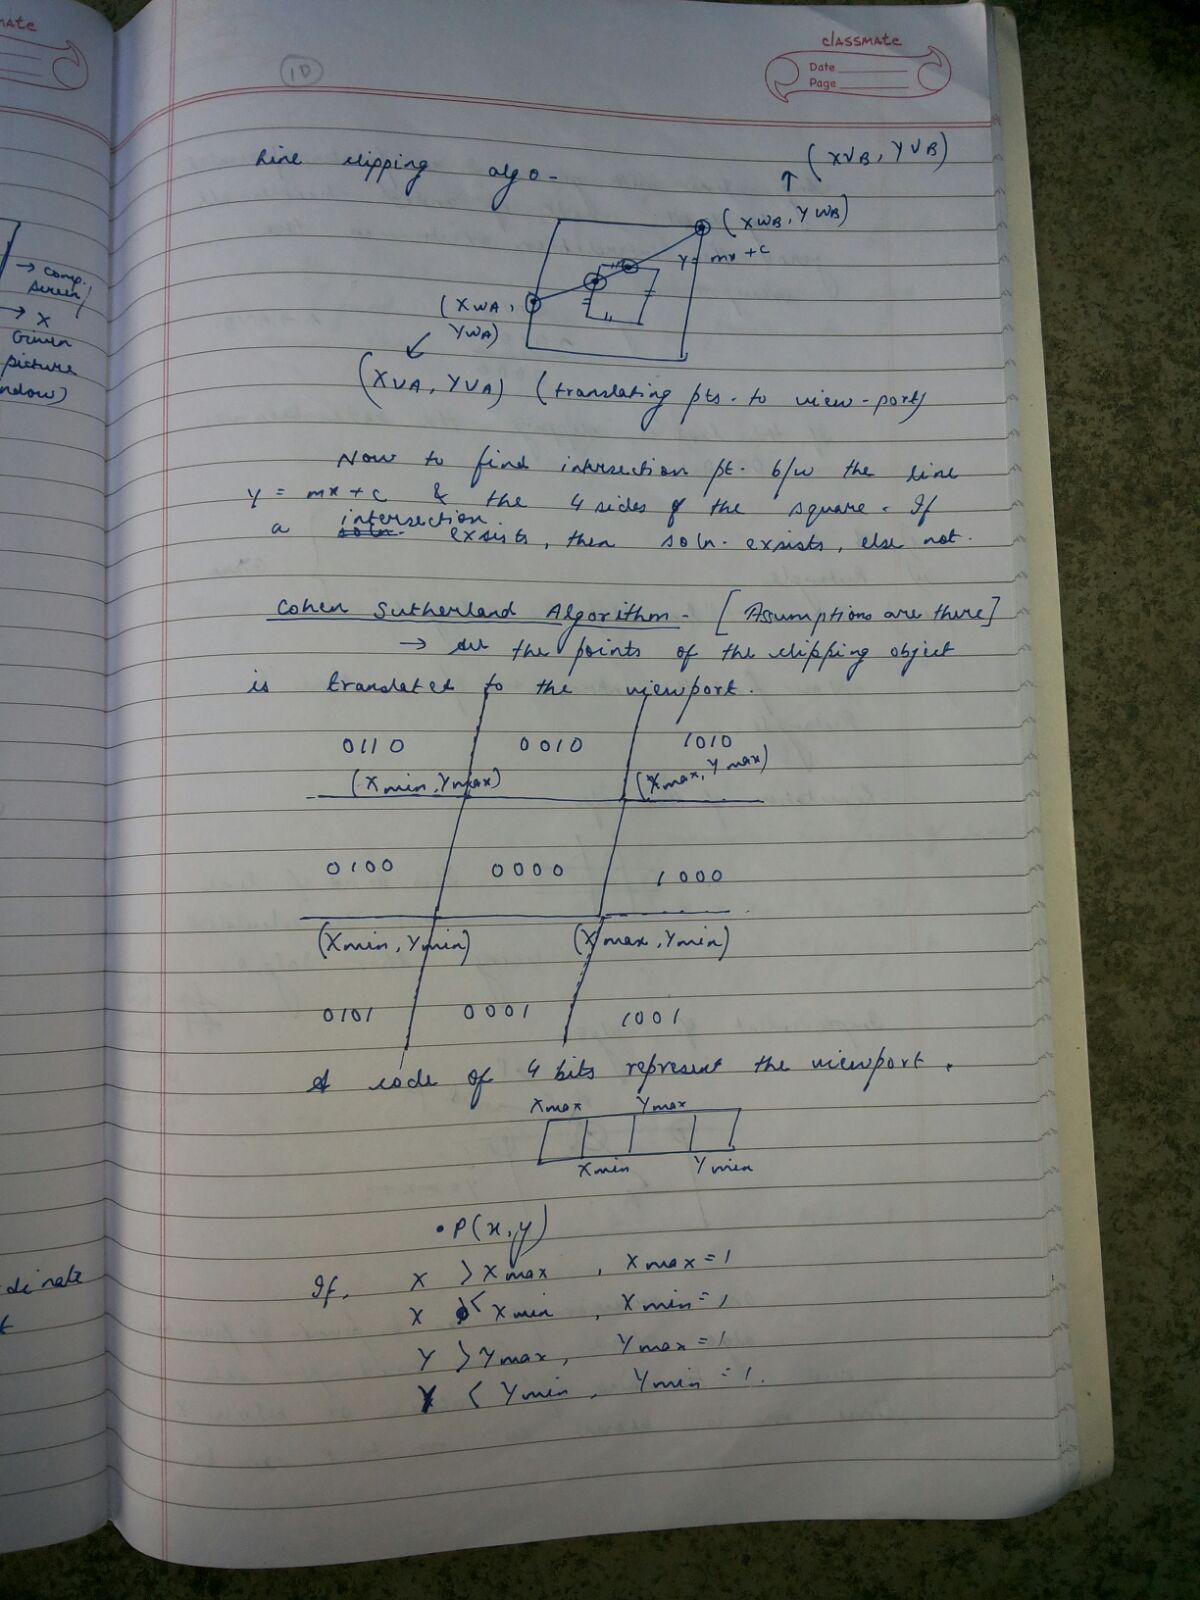 mate
→ comp.
screen
→ X
Given
picture
ndow)
dinate
classmate
Date
Page
10
Line clipping algo -
(XVB, YVB)
↑
(XWB, YWB)
Y = mx + c
(XWA,
YWA)
↙
(XVA, YVA) (translating pts. to view-port)
Now to find intersection pt. b/w the line
y = mx + c & the 4 sides of the square. If
a intersection exsists, then soln. exsists, else not.
Cohen Sutherland Algorithm - [Assumptions are there]
→ All the points of the clipping object
is translated to the viewport.
0110 0010 1010
(Xmin, Ymax) (Xmax, Ymax)
0100 0000 1000
(Xmin, Ymin) (Xmax, Ymin)
0101 0001 1001
A code of 4 bits represent the viewport.
Xmax Ymax
Xmin Ymin
• P(x, y)
If, X > Xmax, Xmax = 1
X < Xmin, Xmin = 1
Y > Ymax, Ymax = 1
Y < Ymin, Ymin = 1.